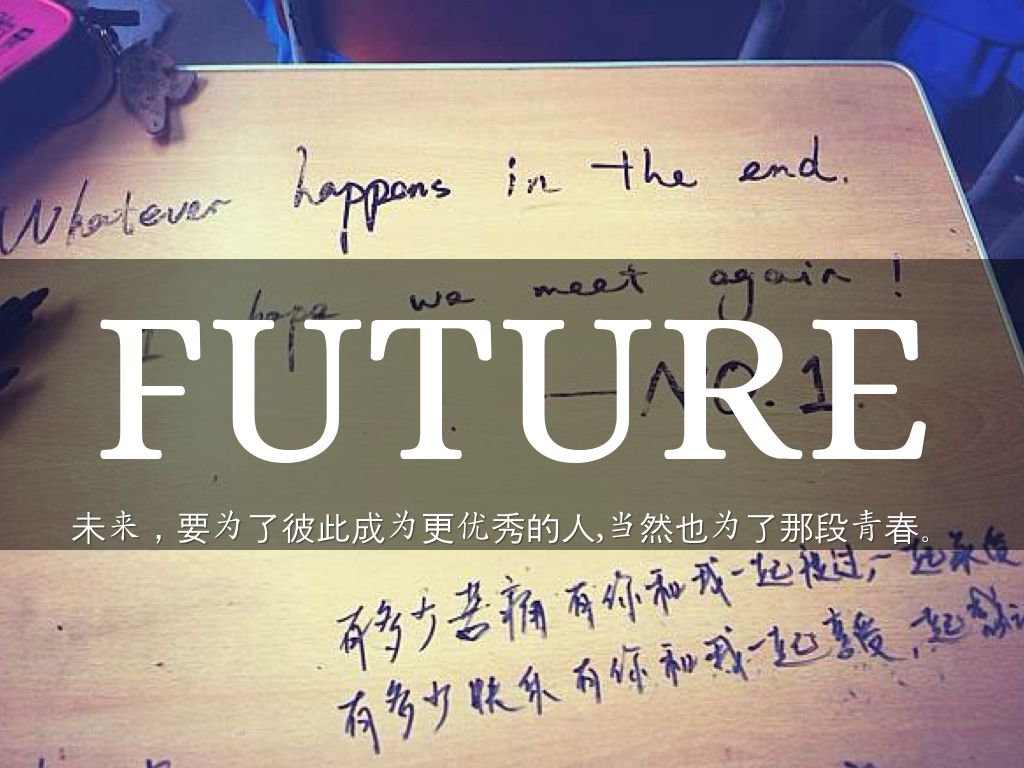 Whatever happens in the end.
I hope we meet again!
FUTURE
—NO.1.
未来，要为了彼此成为更优秀的人,当然也为了那段青春。
有多少苦痛有你和我一起度过,一起承受
有多少快乐有你和我一起享受,一起感